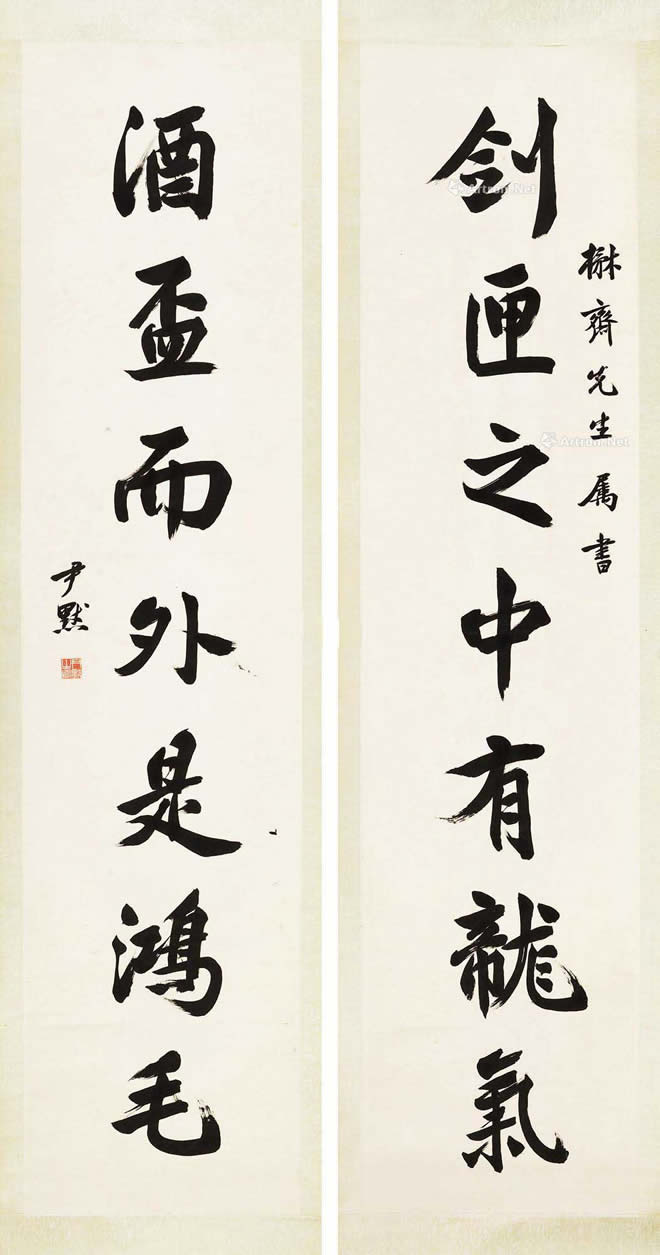 楙齋先生属書
剑匣之中有龍氣
酒盃而外是鴻毛
尹默
Artron.Net
Artron.Net